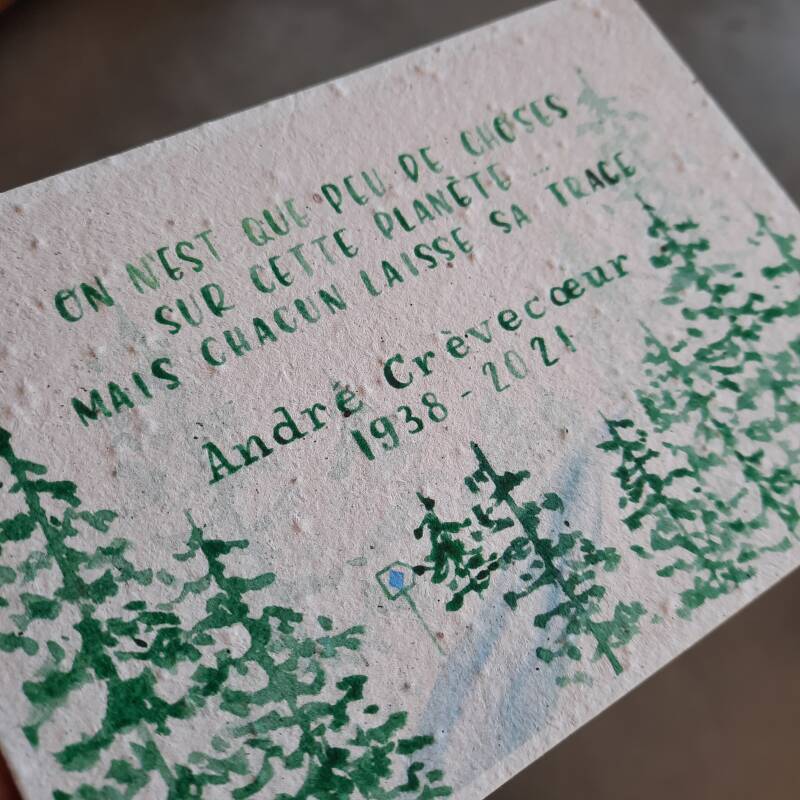 ON N'EST QUE PEU DE CHOSES
SUR CETTE PLANÈTE ...
MAIS CHACUN LAISSE SA TRACE
André Crèvecœur
1938 - 2021